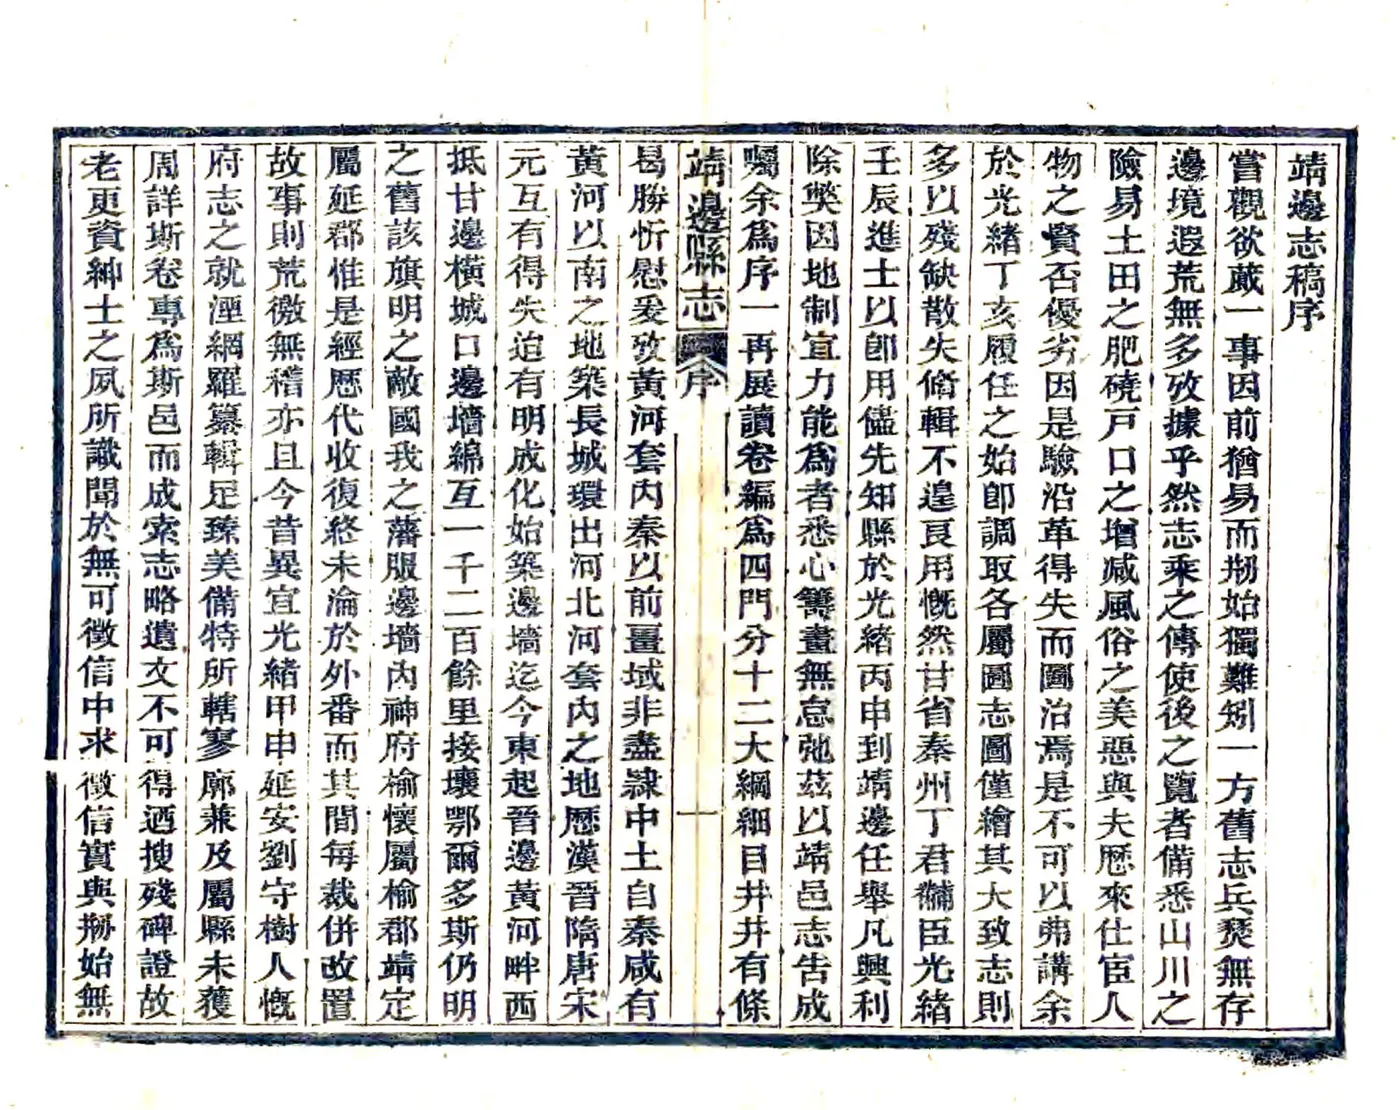 靖邊志稿序
嘗觀欲蕆一事因前猶易而剙始獨難矧一方舊志兵燹無存
邊境遐荒無多攷據乎然志乘之傳使後之覽者備悉山川之
險易土田之肥磽戸口之增減風俗之美惡與夫歷來仕宦人
物之賢否優劣因是驗沿革得失而圖治焉是不可以弗講余
於光緒丁亥履任之始卽調取各屬圖志圖僅繪其大致志則
多以殘缺散失脩輯不遑艮用慨然甘省秦州丁君黼臣光緒
壬辰進士以卽用儘先知縣於光緒丙申到靖邊任舉凡興利
除獘因地制宜力能爲者悉心籌畫無怠弛茲以靖邑志告成
囑余爲序一再展讀卷編爲四門分十二大綱細目井井有條
靖邊縣志 序 一
曷勝忻慰爰攷黃河套內秦以前畺域非盡隷中土自秦咸有
黃河以南之地築長城環出河北河套內之地歷漢晉隋唐宋
元互有得失迨有明成化始築邊墻迄今東起晉邊黃河畔西
抵甘邊橫城口邊墻綿互一千二百餘里接壤鄂爾多斯仍明
之舊該旗明之敵國我之藩服邊墻內神府榆懷屬榆郡靖定
屬延郡惟是經歷代收復終未淪於外番而其間每裁併改置
故事則荒徼無稽亦且今昔異宜光緒甲申延安劉守樹人慨
府志之就湮網羅纂輯足臻美備特所轄寥廓兼及屬縣未獲
周詳斯卷專爲斯邑而成索志略遺文不可得迺搜殘碑證故
老更資紳士之夙所識聞於無可徵信中求徵信實與剙始無